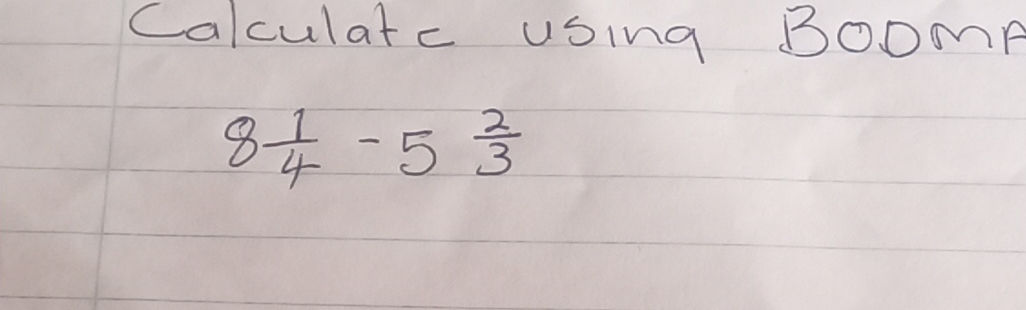 Calculate using BODMA
8 1/4 - 5 2/3